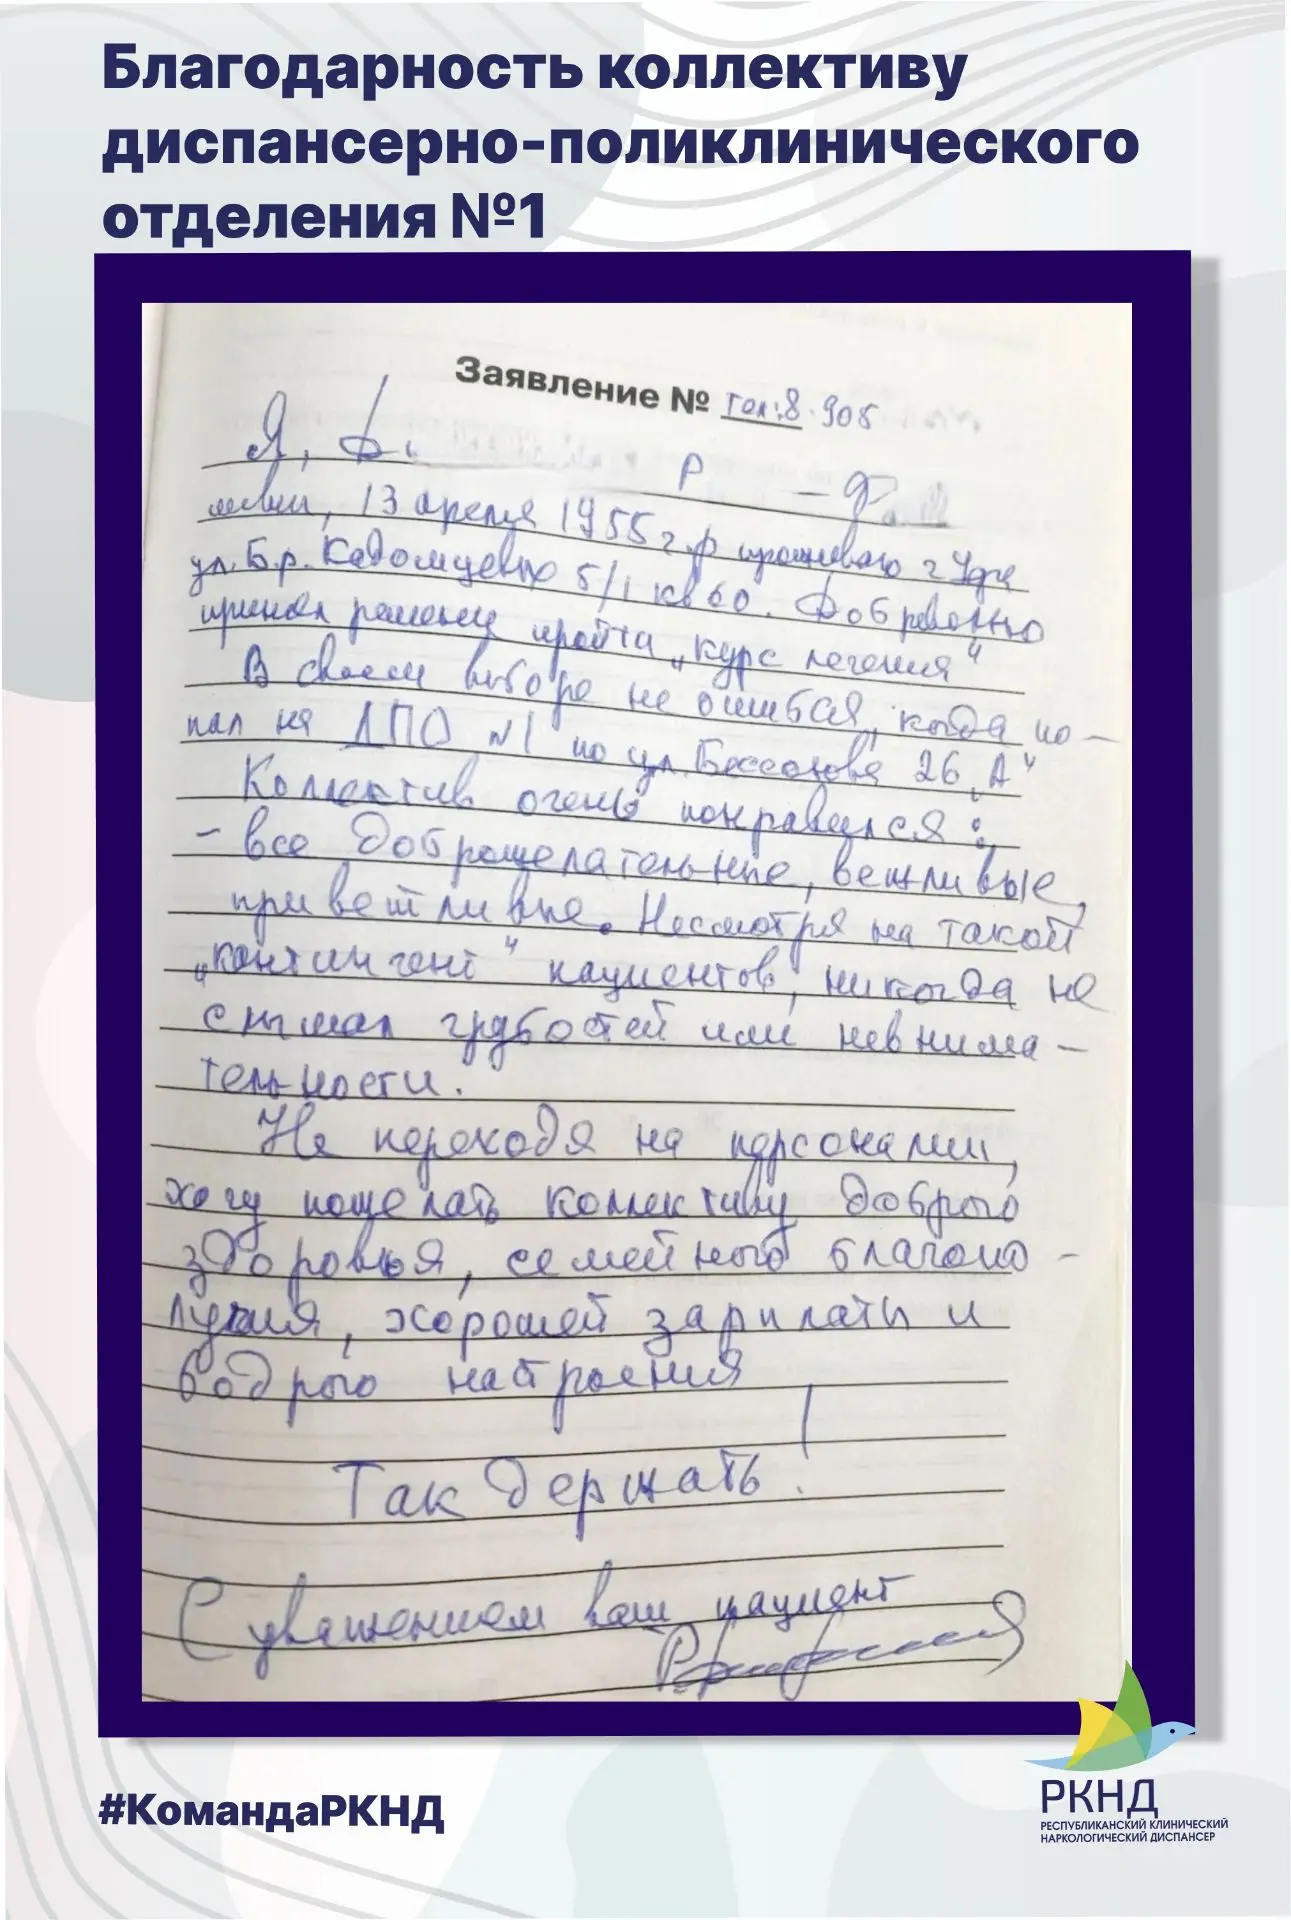 Благодарность коллективу
диспансерно-поликлинического
отделения №1
Заявление № тел:8-905
Я, 
13 апреля 1955 г.р проживаю г Уфа
ул. Бр. Кадомцевых 5/1 кв 60. Добровольно
принял решение пройти „курс лечения“
В своем выборе не ошибся, когда по-
пал на ДПО №1 по ул. 26 „А“
Коллектив очень понравился:
- все доброжелательные, вежливые,
приветливые. Несмотря на такой
„контингент“ пациентов, никогда не
слышал грубостей или невнима-
тельности.
Не переходя на персоналии,
хочу пожелать коллективу доброго
здоровья, семейного благопо-
лучия, хорошей зарплаты и
бодрого настроения
Так держать!
С уважением ваш пациент
#КомандаРКНД
РКНД
РЕСПУБЛИКАНСКИЙ КЛИНИЧЕСКИЙ
НАРКОЛОГИЧЕСКИЙ ДИСПАНСЕР